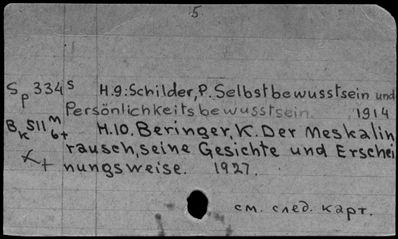 5
Sp 334 s H.9: Schilder, P. Selbstbewusstsein und
Persönlichkeitsbewusstsein. 1914
Bk 511 m/6+ H.10. Beringer, K. Der Meskalin
rausch, seine Gesichte und Erschei
nungsweise. 1927.
см. след. карт.